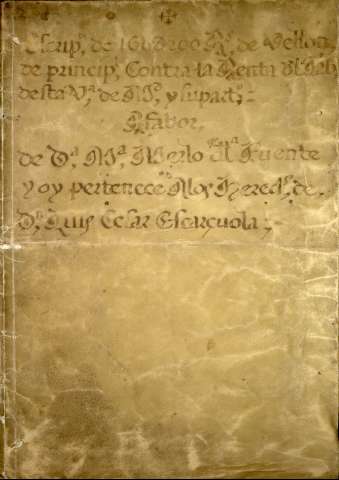 ✠
Escrip.ª de 160U300 R.ˢ de Vellon
de princip.ˡ Contra la Renta del
desta V.ª de M.ᵈ y su part.ᵒ:-
A fabor,
de D.ª M.ª Merlo de la Fuente
y oy pertenece A los Hered.ˢ de
D.ⁿ Luis Cesar Escarçuola;-